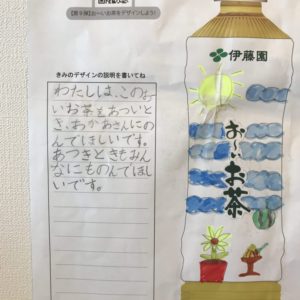 【第9回】お〜いお茶をデザインしよう!
きみのデザインの説明を書いてね
わたしは、このお
いお茶をあついと
き、おかあさんにの
んでほしいです。
あつきときもみん
なにものんでほし
いです。
伊藤園
お〜いお茶